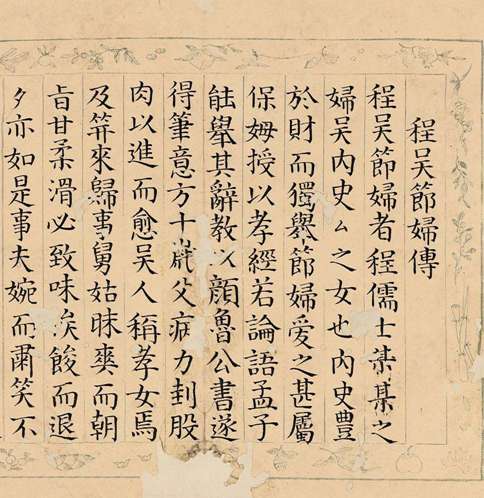 程吳節婦傳
程吳節婦者程儒士某某之
婦吳內史厶之女也內史豐
於財而獨舉節婦愛之甚屬
保姆授以孝經若論語孟子
能舉其辭教以顏魯公書遂
得筆意方十歲父病力刲股
肉以進而愈吳人稱孝女焉
及筓來歸事舅姑昧爽而朝
旨甘柔滑必致味俟餕而退
夕亦如是事夫婉而肅笑不